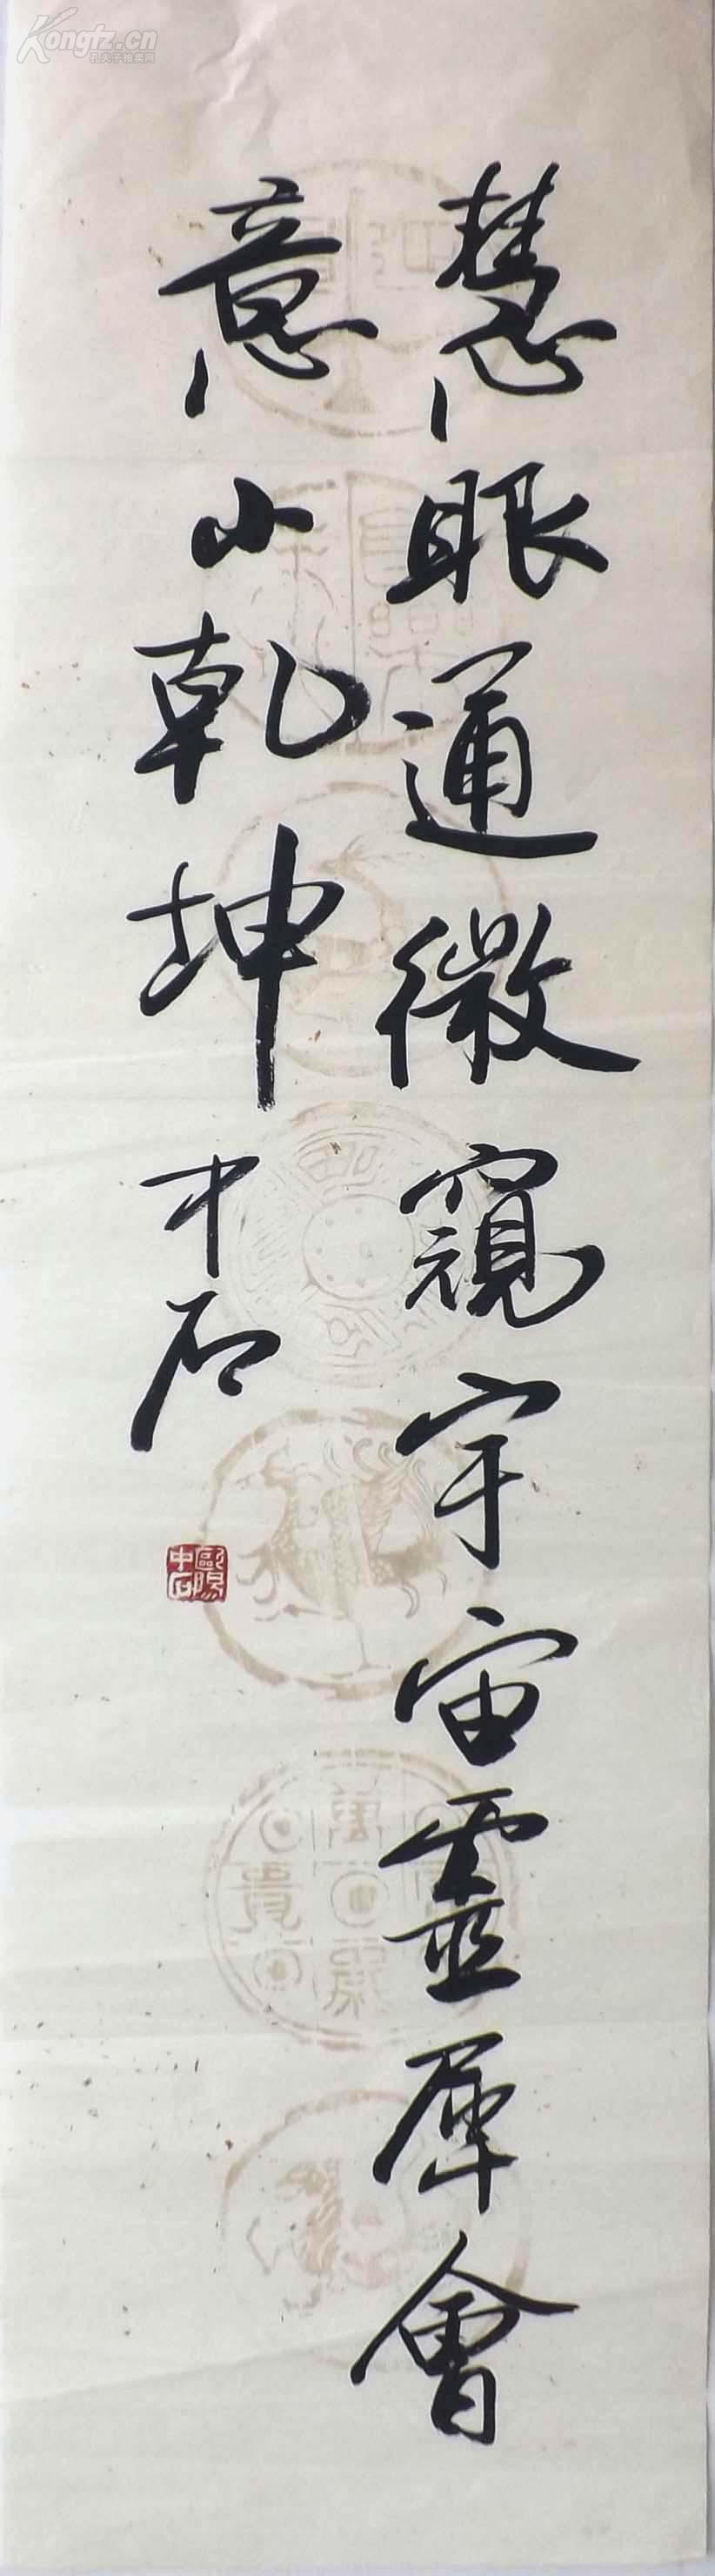 慧眼通微窺宇宙靈犀會
意小乾坤
中石
歐陽中石
Kongfz.cn
孔夫子拍卖网